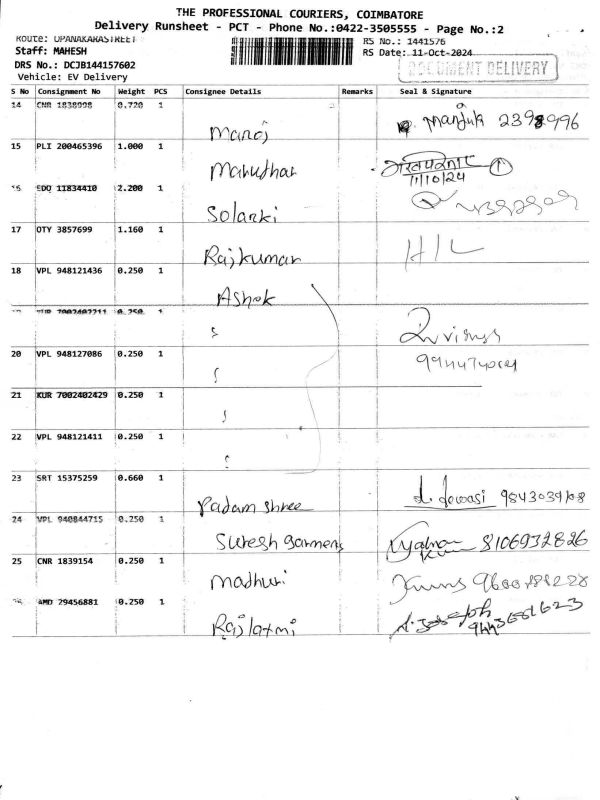 THE PROFESSIONAL COURIERS, COIMBATORE
Delivery Runsheet - PCT - Phone No.:0422-3505555 - Page No.:2
Route: OPANAKARASTREET
RS No.: 1441576
Staff: MAHESH
RS Date: 11-Oct-2024
DRS No.: DCJB144157602
DOCUMENT DELIVERY
Vehicle: EV Delivery
S No Consignment No Weight PCS Consignee Details Remarks Seal & Signature
14 CNR 1838998 0.720 1 Manoj Manjuk 2398996
15 PLI 200465396 1.000 1 Marudhar 11/10/24
16 EDQ 11834410 2.200 1 Solanki
17 OTY 3857699 1.160 1 Rajkumar H/L
18 VPL 948121436 0.250 1 Ashok
19 KUR 7002402211 0.250 1
20 VPL 948127086 0.250 1
21 KUR 7002402429 0.250 1
22 VPL 948121411 0.250 1
23 SRT 15375259 0.660 1 Padam Shree d. dewasi
24 VPL 940844715 0.250 1 Suresh Garments 8106932826
25 CNR 1839154 0.250 1 madhuri
26 AMD 29456881 0.250 1 Rajlaxmi